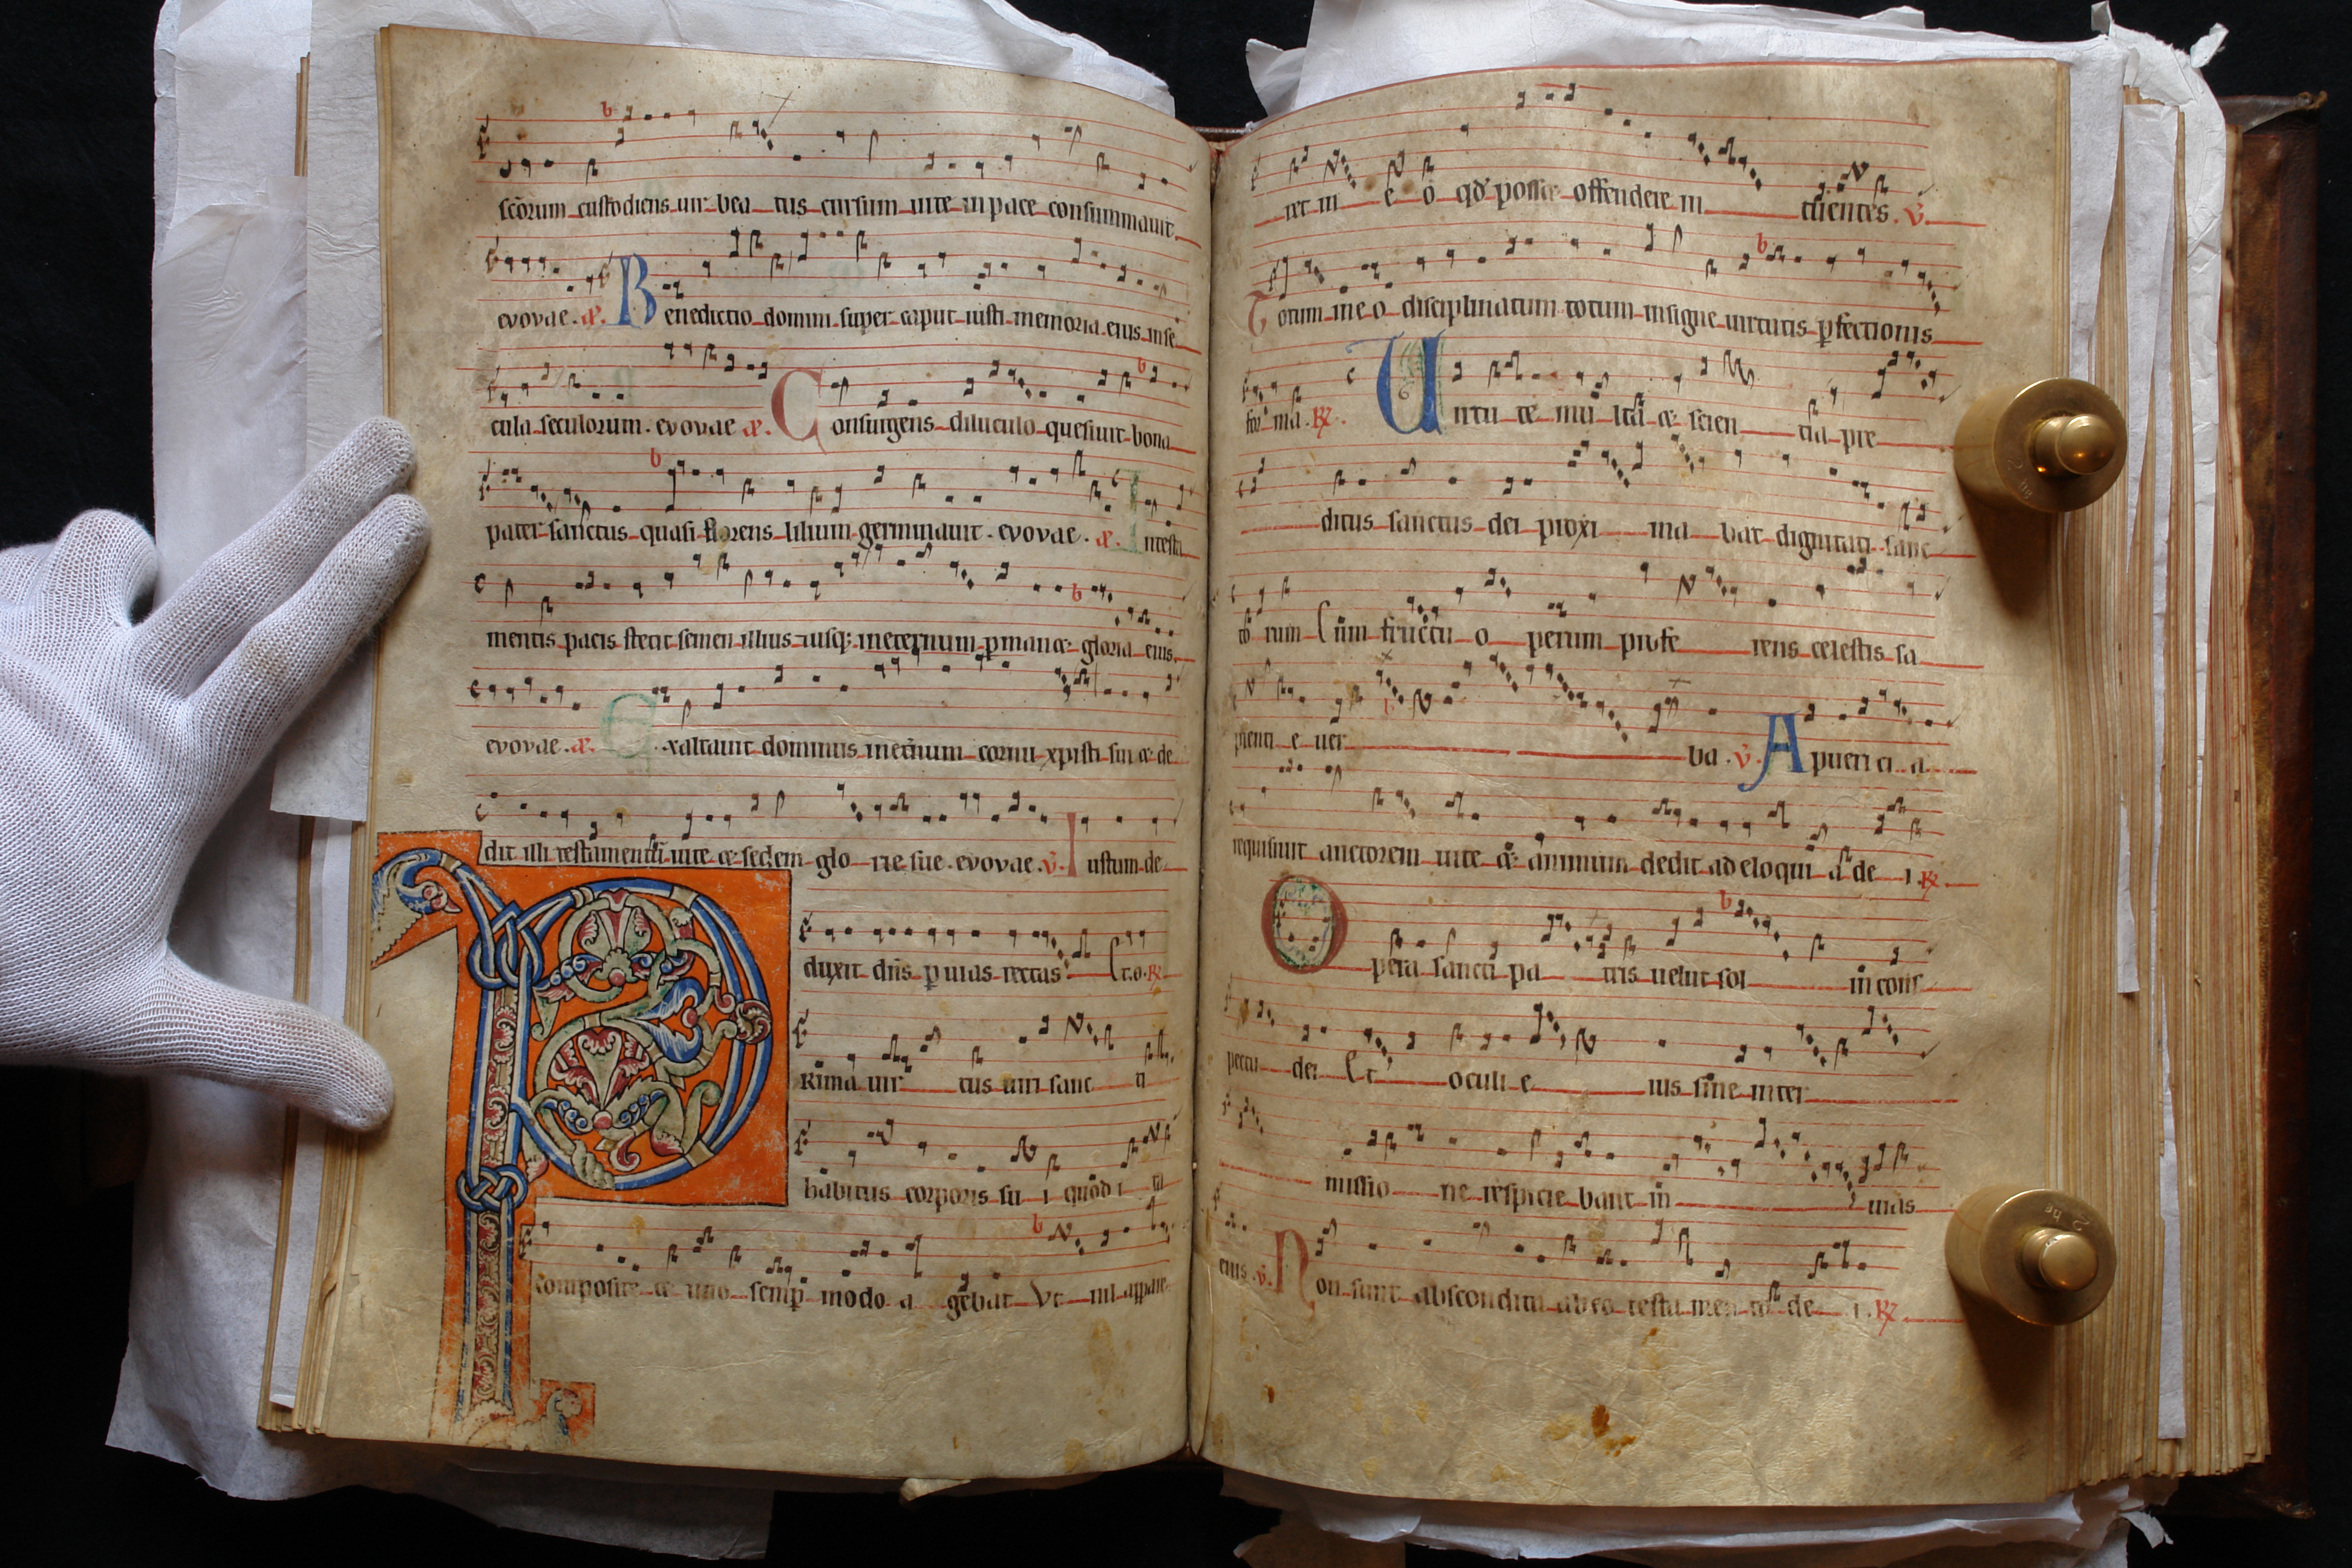 scōrum custodiens uir bea tus cursum uite in pace consummauit
evovae. æ. Benedictio domini super caput iusti memoria eius in se
cula seculorum. evovae æ. Consurgens diluculo quesiuit bona
pater sanctus quasi florens lilium germinauit. evovae. æ. In testa
mentis pacis stetit semen illius iusq; in eternum pmanæ gloria eius
evovae. æ. Exaltauit dominus in etnum cornu xpisti sui æ de
dit illi testamentū uite æ sedem glo rie sue. evovae. v. Iustum de
duxit dn̄s p uias rectas Et o. R
PRima uir tus uiri sanc ti
habitus corporis su i quod i ta
composite æ uno semp modo a gebat Vt nil appare
ret in e o qd̄ posset offendere in tuentes. v.
Totum in eo disciplinatum totum insigne uirtutis pfectionis
for ma. R. Uirtu te mul ta æ scien tia pre
ditus sanctus dei proxi ma bat dignitati sanc
to rum Cum fructu o perum profe rens celestis sa
pienti e uer ba. v. A puericia
requisiuit auctorem uite æ animum dedit ad eloqui a de i. R.
Opera sancti pa tris uelut sol in cons
pectu dei Et oculi e ius sine inter
missio ne respicie bant in uias
eius. v. Non sunt abscondita ab eo testa men to de i. R